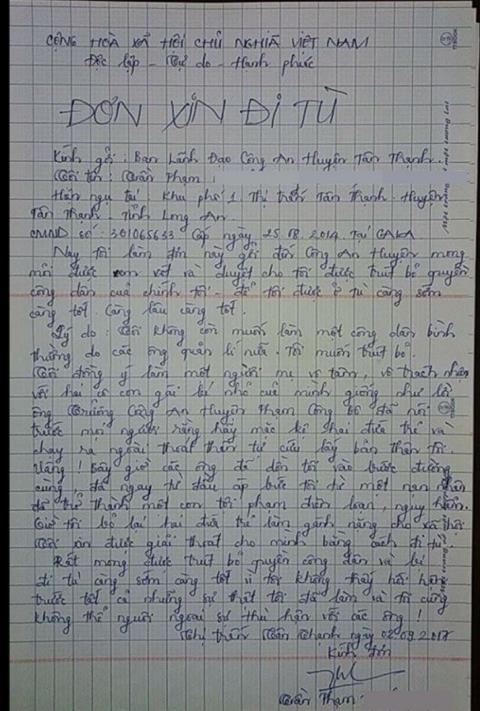 CỘNG HOÀ XÃ HỘI CHỦ NGHĨA VIỆT NAM
Độc lập - Tự do - Hạnh phúc
ĐƠN XIN ĐI TÙ
Kính gởi: Ban Lãnh Đạo Công An Huyện Tân Thạnh.
Tôi tên: Trần Thạm:
Hiện ngụ tại Khu phố 1 Thị trấn Tân Thạnh. Huyện
Tân Thạnh. Tỉnh Long An.
CMND số: 301065633 Cấp ngày 25.08.2014 Tại CALA
Nay tôi làm đơn này gởi đến Công An Huyện mong
mỏi được xem xét và duyệt cho tôi được trút bỏ quyền
công dân của chính tôi - để tôi được ở tù càng sớm
càng tốt. Càng lâu càng tốt.
Lý do: Tôi không còn muốn làm một công dân bình
thường do các ông quản lí nữa. Tôi muốn trút bỏ.
Tôi đồng ý làm một người mẹ vô tâm, vô trách nhiệm
với hai cô con gái bé nhỏ của mình giống như lời
ông Trưởng Công An Huyện Phạm Công Bố đã nói
trước mọi người rằng hãy mặc kệ hai đứa trẻ và
chạy ra ngoài thoát thân tự cứu lấy bản thân tôi.
Vâng! Bây giờ các ông đã dồn tôi vào bước đường
cùng, đã ngay từ đầu áp bức tôi từ một nạn nhân
để trở thành một con tội phạm điên loạn, nguy hiểm.
Giờ tôi bỏ lại hai đứa trẻ làm gánh nặng cho xã hội
Tôi xin được giải thoát cho mình bằng cách đi tù.
Rất mong được trút bỏ quyền công dân và bị
đi tù càng sớm càng tốt vì tôi không thấy hối hận
trước tất cả những sự thật tôi đã làm và tôi cũng
không thể nguôi ngoai sự thù hận với các ông!
Thị trấn Tân Thạnh ngày 02.09.2017
Kính đơn
Trần Thạm.